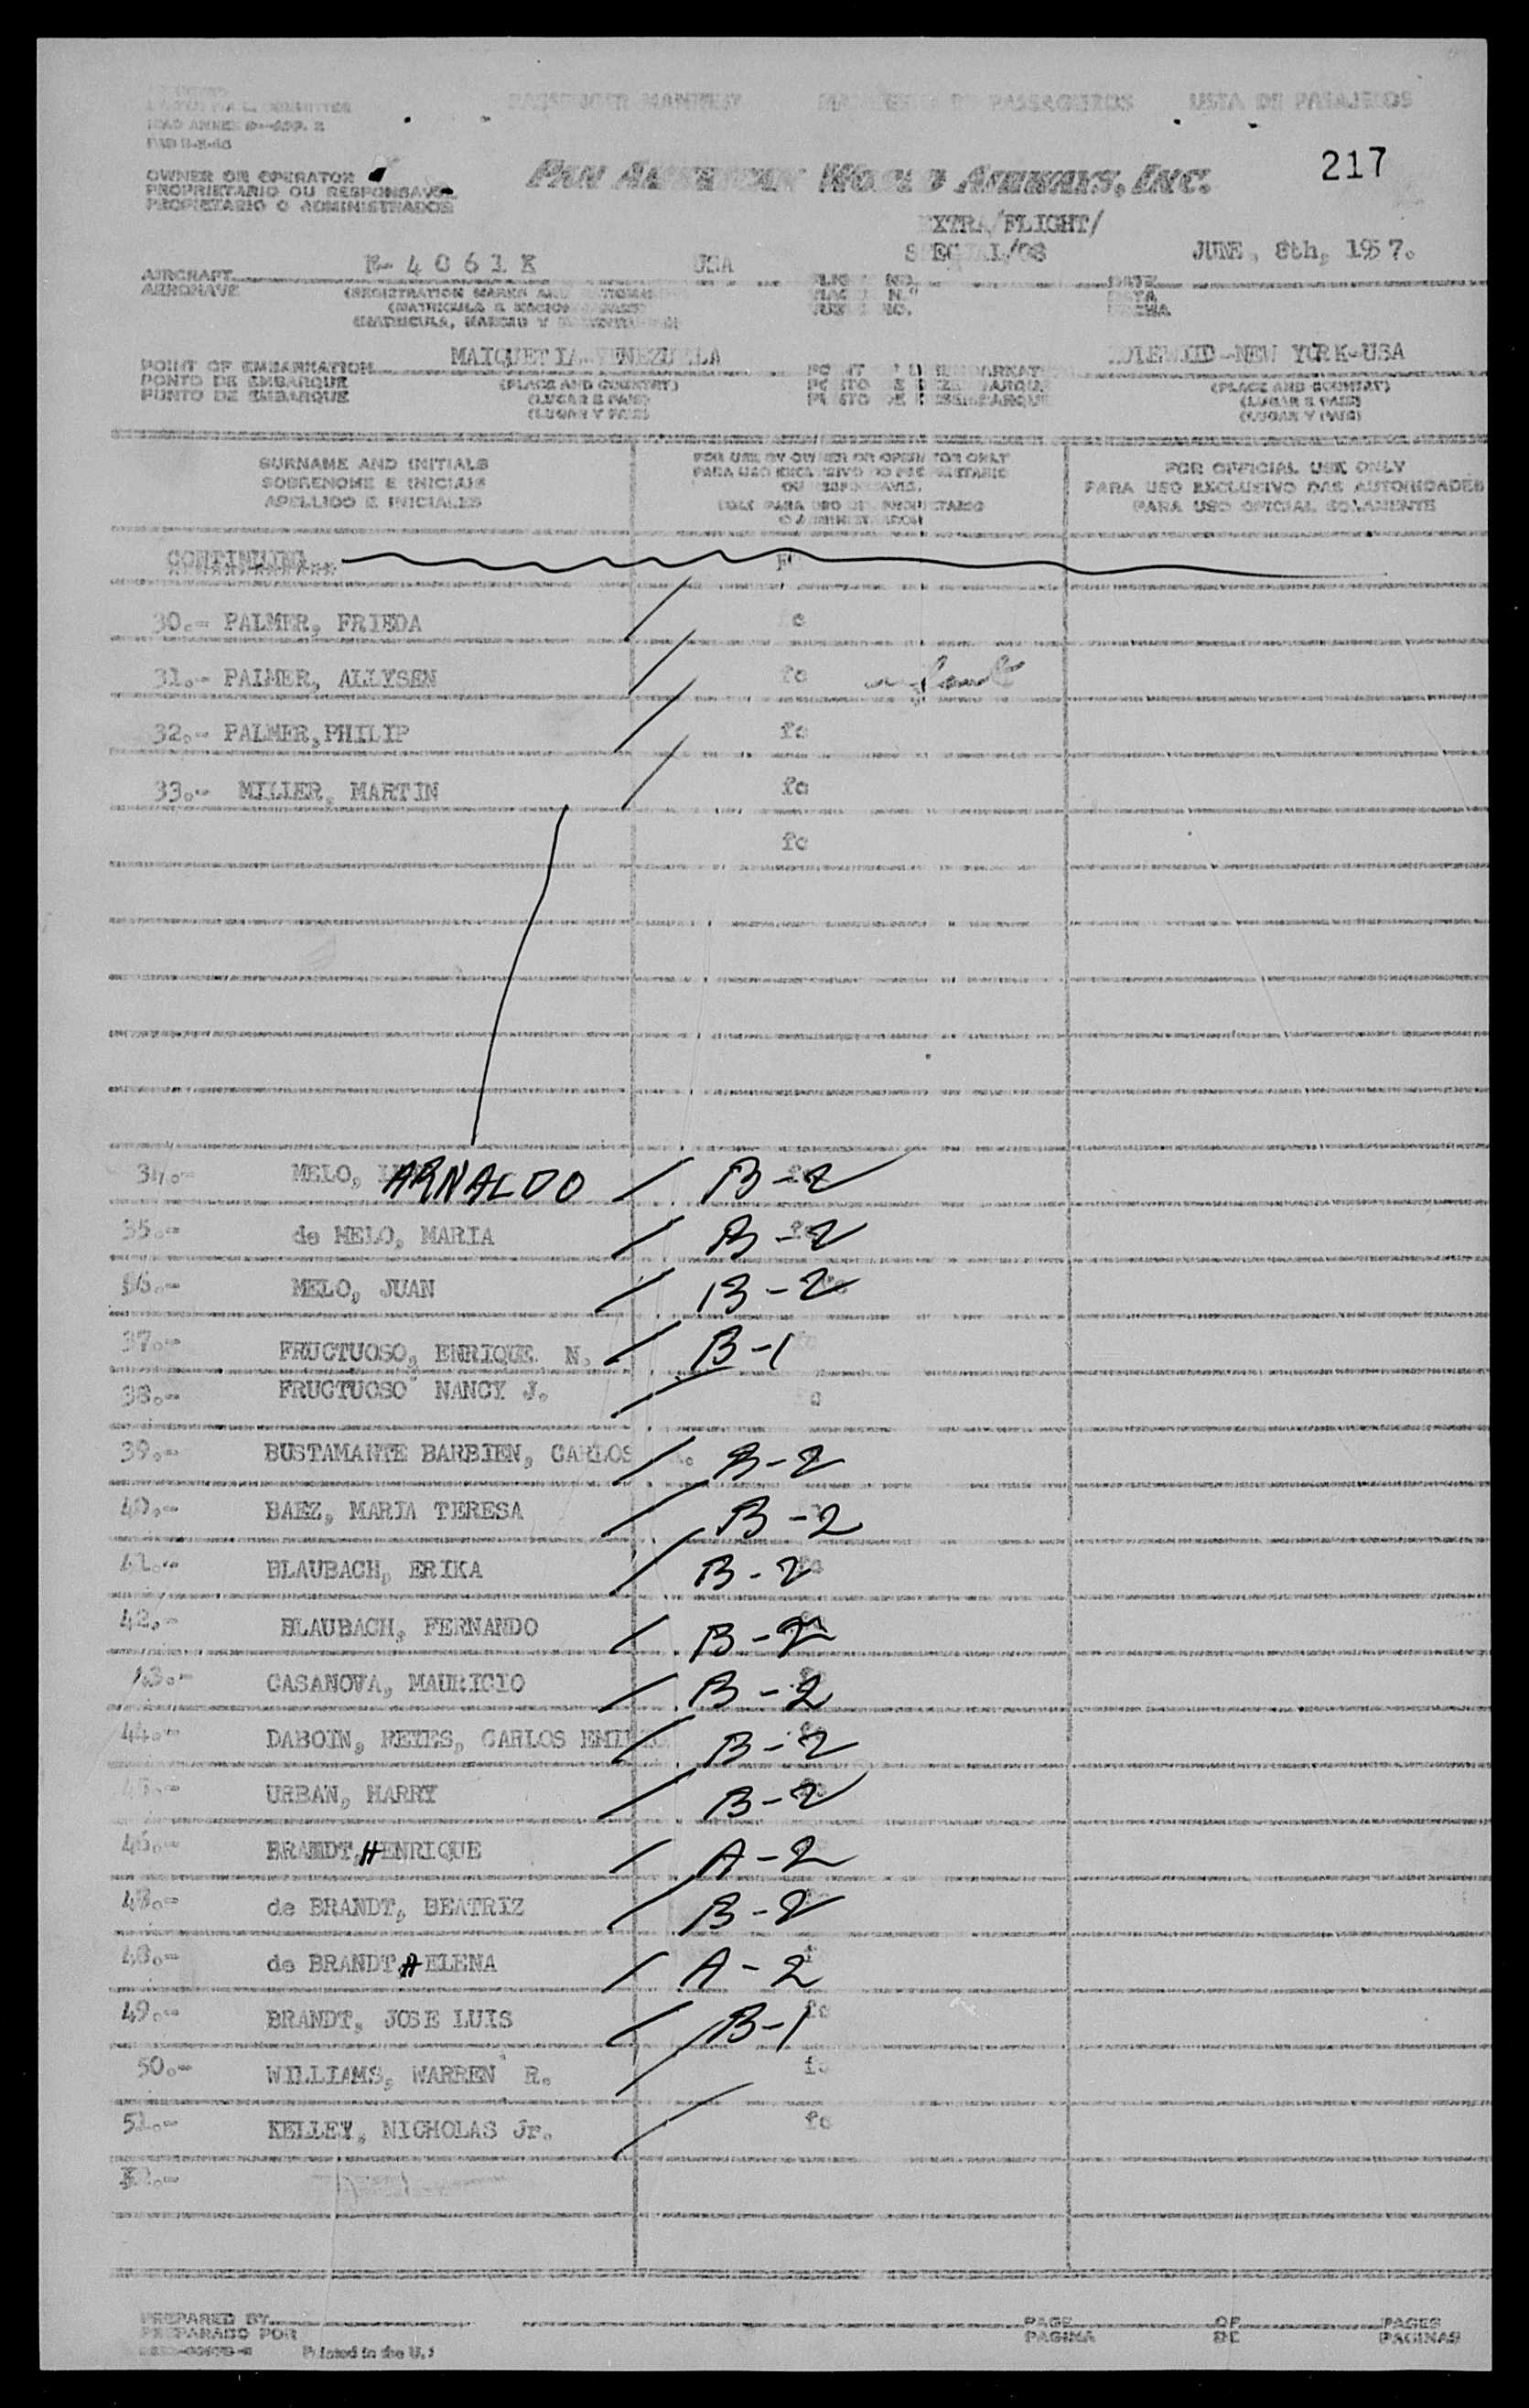 PASSENGER MANIFEST MANIFESTO DE PASSAGEIROS LISTA DE PASAJEROS
217
OWNER OR OPERATOR
PROPRIETARIO OU RESPONSAVEL
PROPIETARIO O ADMINISTRADOR
PAN AMERICAN WORLD AIRWAYS, INC.
EXTRA/FLIGHT/
SPECIAL/08
JUNE, 8th, 1957.
4 0 6 1 K USA
AIRCRAFT
AERONAVE
FLIGHT NO.
DATE
DATA
FECHA
MAIQUETIA-VENEZUELA
IDLEWILD-NEW YORK-USA
POINT OF EMBARKATION
PONTO DE EMBARQUE
PUNTO DE EMBARQUE
(PLACE AND COUNTRY)
(LUGAR E PAIS)
(LUGAR Y PAIS)
(PLACE AND COUNTRY)
(LUGAR E PAIS)
(LUGAR Y PAIS)
SURNAME AND INITIALS
SOBRENOME E INICIAIS
APELLIDO E INICIALES
FOR USE BY OWNER OR OPERATOR ONLY
FOR OFFICIAL USE ONLY
PARA USO EXCLUSIVO DAS AUTORIDADES
PARA USO OFICIAL SOLAMENTE
30.- PALMER, FRIEDA
31.- PALMER, ALLYSEN fc infant
32.- PALMER, PHILIP fc
33.- MILLER, MARTIN fc
fc
34.- MELO, ARNALDO B-2
35.- de MELO, MARIA B-2
36.- MELO, JUAN B-2
37.- FRUCTUOSO, ENRIQUE N. B-1
38.- FRUCTUOSO NANCY J.
39.- BUSTAMANTE BARBIEN, CARLOS B-2
40.- BAEZ, MARIA TERESA B-2
41.- BLAUBACH, ERIKA B-2
42.- BLAUBACH, FERNANDO B-2
43.- CASANOVA, MAURICIO B-2
44.- DABOIN, REYES, CARLOS EMILIO B-2
45.- URBAN, HARRY B-2
46.- BRANDT, HENRIQUE A-2
47.- de BRANDT, BEATRIZ B-2
48.- de BRANDT HELENA A-2
49.- BRANDT, JOSE LUIS fc B-1
50.- WILLIAMS, WARREN R. fc
51.- KELLEY, NICHOLAS Jr. fc
PREPARED BY
PREPARADO POR
PAGE
PAGINA
OF
DE
PAGES
PAGINAS
Printed in the U.S